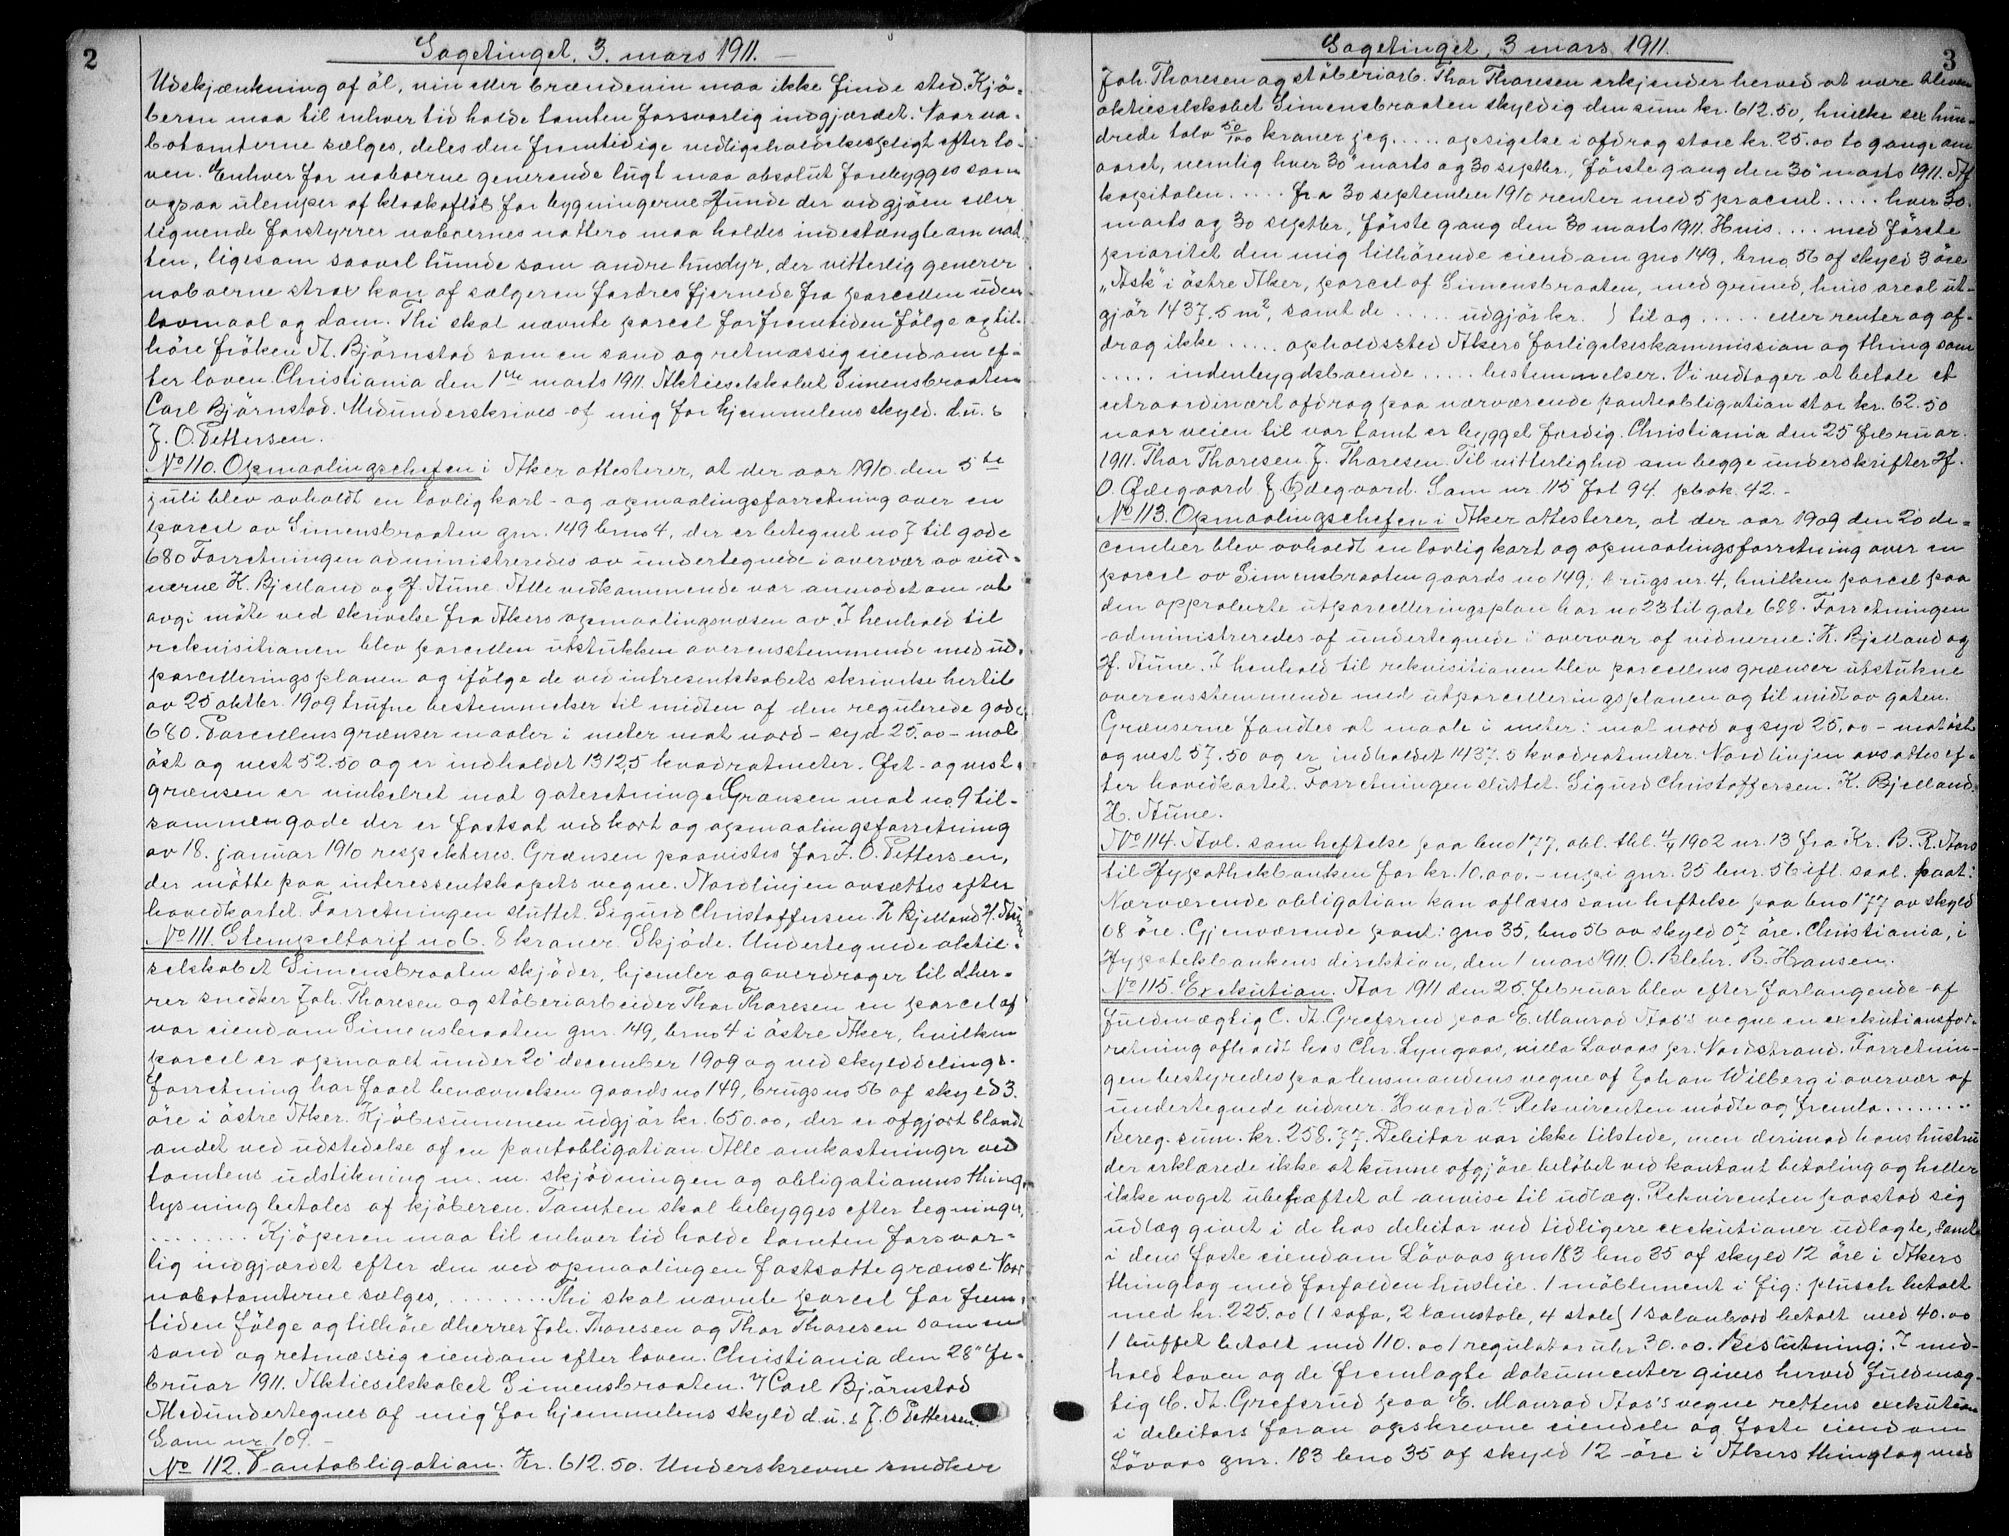 2
Sagetinget, 3. mars 1911. —
Udskjænkning af öl, vin eller brændevin maa ikke finde sted. Kjö-
beren maa til enhver tid holde tomten forsvarlig indgjærdet. Naar na-
botomterne sælges, deles den fremtidige vedligeholdelsespligt efter lo-
ven. Enhver for naboerne generende lugt maa absolut forebygges som
ogsaa ulemper af kloakafløb for bygningerne. Hunde der ved gjöen eller
lignende forstyrrer naboernes nattero maa holdes indestængte om nat-
ten, ligesom saavel hunde som andre husdyr, der vitterlig generer
naboerne strax kan af sælgeren fordres fjernede fra parcellen uden
lovmaal og dom. Thi skal nævnte parcel for fremtiden fölge og til-
höre fröken A. Björnstad som en sand og retmæssig eiendom ef-
ter loven. Christiania den 1ste marts 1911. Aktieselskabet Simensbraaten
Carl Björnstad. Medunderskrives af mig for hjemmelens skyld. d.u.s
J. O. Pettersen.
No 110. Opmaalingschefen i Aker attesterer, at der aar 1910 den 5te
juli blev avholdt en lovlig kart- og opmaalingsforretning over en
parcel av Simensbraaten gnr. 149 brno 4, der er betegnet no 7 til gade
680 Forretningen administreredes av undertegnede i overvær av vid-
nerne K. Bjelland og H. Aune. Alle vedkommende var anmodet om at
avgi möte ved skrivelse fra Akers opmaalingsvæsen av. I henhold til
rekvisitionen blev parcellen utstukken overensstemmende med ud-
parcelleringsplanen og ifölge de ved intresentskabets skrivelse hertil
av 25 oktbr. 1909 trufne bestemmelser til midten af den regulerede gade
680. Parcellens grænser maaler i meter mot nord - syd 25.00 - mot
öst og vest 52.50 og er indholdet 1312,5 kvadratmeter. Øst- og vest-
grænsen er vinkelret mot gateretningen. Grænsen mot no 9 til-
sammengade der er fastsat ved kart og opmaalingsforretning
av 18. januar 1910 respekteres. Grænsen paavistes for J. O. Pettersen,
der mötte paa interessentskapets vegne. Nordlinjen avsættes efter
hovedkartet. Forretningen sluttet. Sigurd Christoffersen. K Bjelland H. Aune
No 111. Stempeltarif no 6. 8 kroner. Skjöde. Undertegnede aktie-
selskabet Simensbraaten skjöder, hjemler og overdrager til dher-
rer snedker Joh. Thoresen og stöberiarbeider Thor Thoresen en parcel af
vor eiendom Simensbraaten gnr. 149, brno 4 i östre Aker, hvilken
parcel er opmaalt under 20 december 1909 og ved skylddelings-
forretning har faaet benævnelsen gaards no 149, brugs no 56 af skyld 3.
öre i östre Aker. Kjöbesummen udgjör kr. 650.00, der er afgjort blandt
andet ved udstedelse af en pantobligation. Alle omkostninger ved
tomtens udstikning m. m. skjödningen og obligationens thing-
lysning betales af kjöberen. Tomten skal bebygges efter tegninger,
......... Kjöperen maa til enhver tid holde tomten forsvar-
lig indgjærdet efter den ved opmaalingen fastsatte grænse. Naar
nabotomterne sælges, ......... Thi skal nævnte parcel for frem-
tiden fölge og tilhöre dherrer Joh. Thoresen og Thor Thoresen som en
sand og retmæssig eiendom efter loven. Christiania den 28" fe-
bruar 1911. Aktieselskabet Simensbraaten. Carl Björnstad
Medundertegnes af mig for hjemmelens skyld d.u.s J. O Pettersen.
Som nr 109. –
No 112. Pantobligation. Kr. 612.50. Underskrevne snedker
3
Sagetinget, 3 mars 1911.
Joh. Thoresen og stöberiarb. Thor Thoresen erkjender herved at være bleven
aktieselskabet Simensbraaten skyldig den sum kr. 612.50, hvilke sex hun-
drede tolv 50/100 kroner jeg ..... opsigelse i afdrag store kr. 25.00 to gange om
aaret, nemlig hver 30" marts og 30 septbr., förste gang den 30" marts 1911. Af
kapitalen ..... fra 30 september 1910 renter med 5 procent ..... hver 30.
marts og 30 septbr, förste gang den 30 marts 1911. Hvis .... med förste
prioritet den mig tilhörende eiendom gno 149, brno 56 af skyld 3 öre
"Ask" i östre Aker, parcel af Simensbraaten, med grund, hvis areal ut-
gjör 1437,5 m², samt de ..... udgjör kr. ) til og ..... eller renter og af-
drag ikke ..... opholdssted Akers forligelseskommission og thing som
..... indenbygdsboende ..... bestemmelser. Vi vedtager at betale et
extraordinært afdrag paa nærværende pantobligation stor kr. 62.50
naar veien til vor tomt er bygget færdig. Christiania den 25 februar.
1911. Thor Thoresen J. Thoresen. Til vitterlighed om begge underskrifter H.
O. Ødegaard J Ødegaard. Som nr. 115 fol 94. pbok. 42. –
No 113. Opmaalingschefen i Aker attesterer, at der aar 1909 den 20 de-
cember blev avholdt en lovlig kart og opmaalingsforretning over en
parcel av Simensbraaten gaards no 149, brugs nr. 4, hvilken parcel paa
den approberte utparcelleringsplan har no 23 til gate 688. Forretningen
administreredes af undertegnede i overvær af vidnerne: K. Bjelland og
H. Aune. I henhold til rekvisitionen blev parcellens grænser utstukne
overensstemmende med utparcelleringsplanen og til midt av gaten.
Grænserne fandtes at maale i meter: mot nord og syd 25.00 - mot öst
og vest 57.50 og er indholdet 1437.5 kvadratmeter. Nordlinjen avsattes ef-
ter hovedkartet. Forretningen sluttet. Sigurd Christoffersen. K. Bjelland.
H. Aune.
No 114. Avl. som heftelse paa bno 177, obl. thl. 4/4 1902 nr. 13 fra Kr. B. R. Aars
til Hypothekbanken for kr. 10.000. - m.p.i gnr. 35 bnr. 56 ifl. saal. paat:
Nærværende obligation kan aflæses som heftelse paa bno 177 av skyld
08 öre. Gjenværende pant: gno 35, bno 56 av skyld 07 öre. Christiania, i
Hypotekbankens direktion, den 1 mars 1911. O. Blehr. B. Hansen.
No 115. Exekution. Aar 1911 den 25. februar blev efter forlangende af
fuldmægtig C. A. Grefsrud paa E. Monrad Aas's vegne en exekutionsfor-
retning afholdt hos Chr. Lyngaas, villa Lövaas pr. Nordstrand. Forretnin-
gen bestyredes paa lensmandens vegne af Johan Wilberg i overvær af
undertegnede vidner. Hvorda: Rekvirenten mödte og fremla ........
Bereg. sum. kr. 258.77. Debitor var ikke tilstede, men derimod hans hustru
der erklærede ikke at kunne afgjöre belöbet ved kontant betaling og heller
ikke noget ubehæftet at anvise til udlæg. Rekvirenten paastod sig
udlæg givet i de hos debitor ved tidligere exekutioner udlagte, samt
i dens faste eiendom Lövaas gno 183 bno 35 af skyld 12 öre i Akers
thinglag med forfalden husleie. 1 möblement i fig: plusch betalt
med kr. 225.00 (1 sofa, 2 lænstole, 4 stole) 1 salonbord betalt med 40.00
1 buffet betalt med 110.00 1 regulator uhr 30.00. Beslutning: I med-
hold loven og de fremlagte dokumenter gives herved fuldmæg-
tig C. A. Grefsrud paa E. Monrad Aas's vegne rettens exekution
i debitors foran opskrevne eiendele og faste eiendom
Lövaas gnr. 183 bno 35 af skyld 12 öre i Akers thinglag med